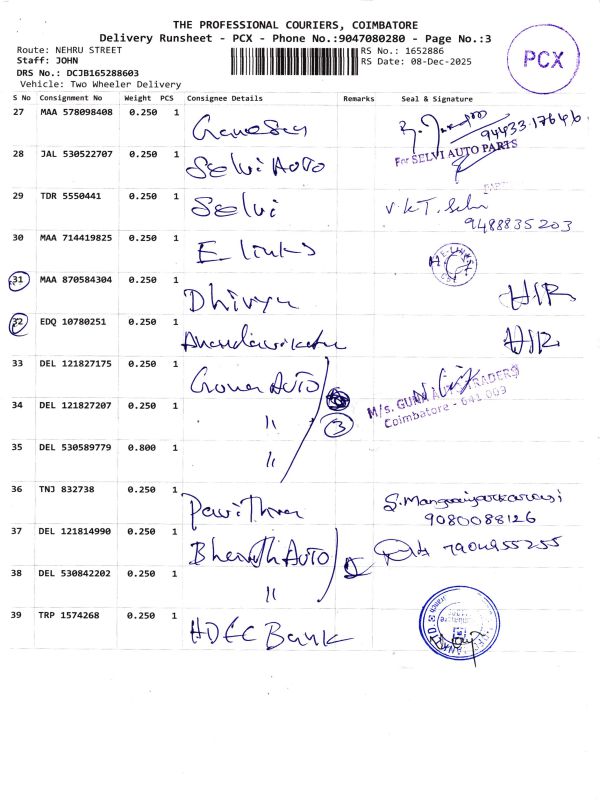 THE PROFESSIONAL COURIERS, COIMBATORE
Delivery Runsheet - PCX - Phone No.:9047080280 - Page No.:3
Route: NEHRU STREET
Staff: JOHN
DRS No.: DCJB165288603
Vehicle: Two Wheeler Delivery
RS No.: 1652886
RS Date: 08-Dec-2025
PCX
S No Consignment No Weight PCS Consignee Details Remarks Seal & Signature
27 MAA 578098408 0.250 1 Ganesan 94433-17646.
28 JAL 530522707 0.250 1 Selvi Auto For SELVI AUTO PARTS
29 TDR 5550441 0.250 1 Selvi V.K.T. Selvi
9488835203
30 MAA 714419825 0.250 1 E links
31 MAA 870584304 0.250 1 Dhivya H/R
32 EDQ 10780251 0.250 1 H/R
33 DEL 121827175 0.250 1 Auto
M/s. GUNA AUTO TRADERS
Coimbatore - 641 009
34 DEL 121827207 0.250 1 " 3
35 DEL 530589779 0.800 1 "
36 TNJ 832738 0.250 1 Pavithra S. Mangaiyarkarasi
9080088126
37 DEL 121814990 0.250 1 Bharath Auto 7904955255
38 DEL 530842202 0.250 1 "
39 TRP 1574268 0.250 1 HDFC Bank